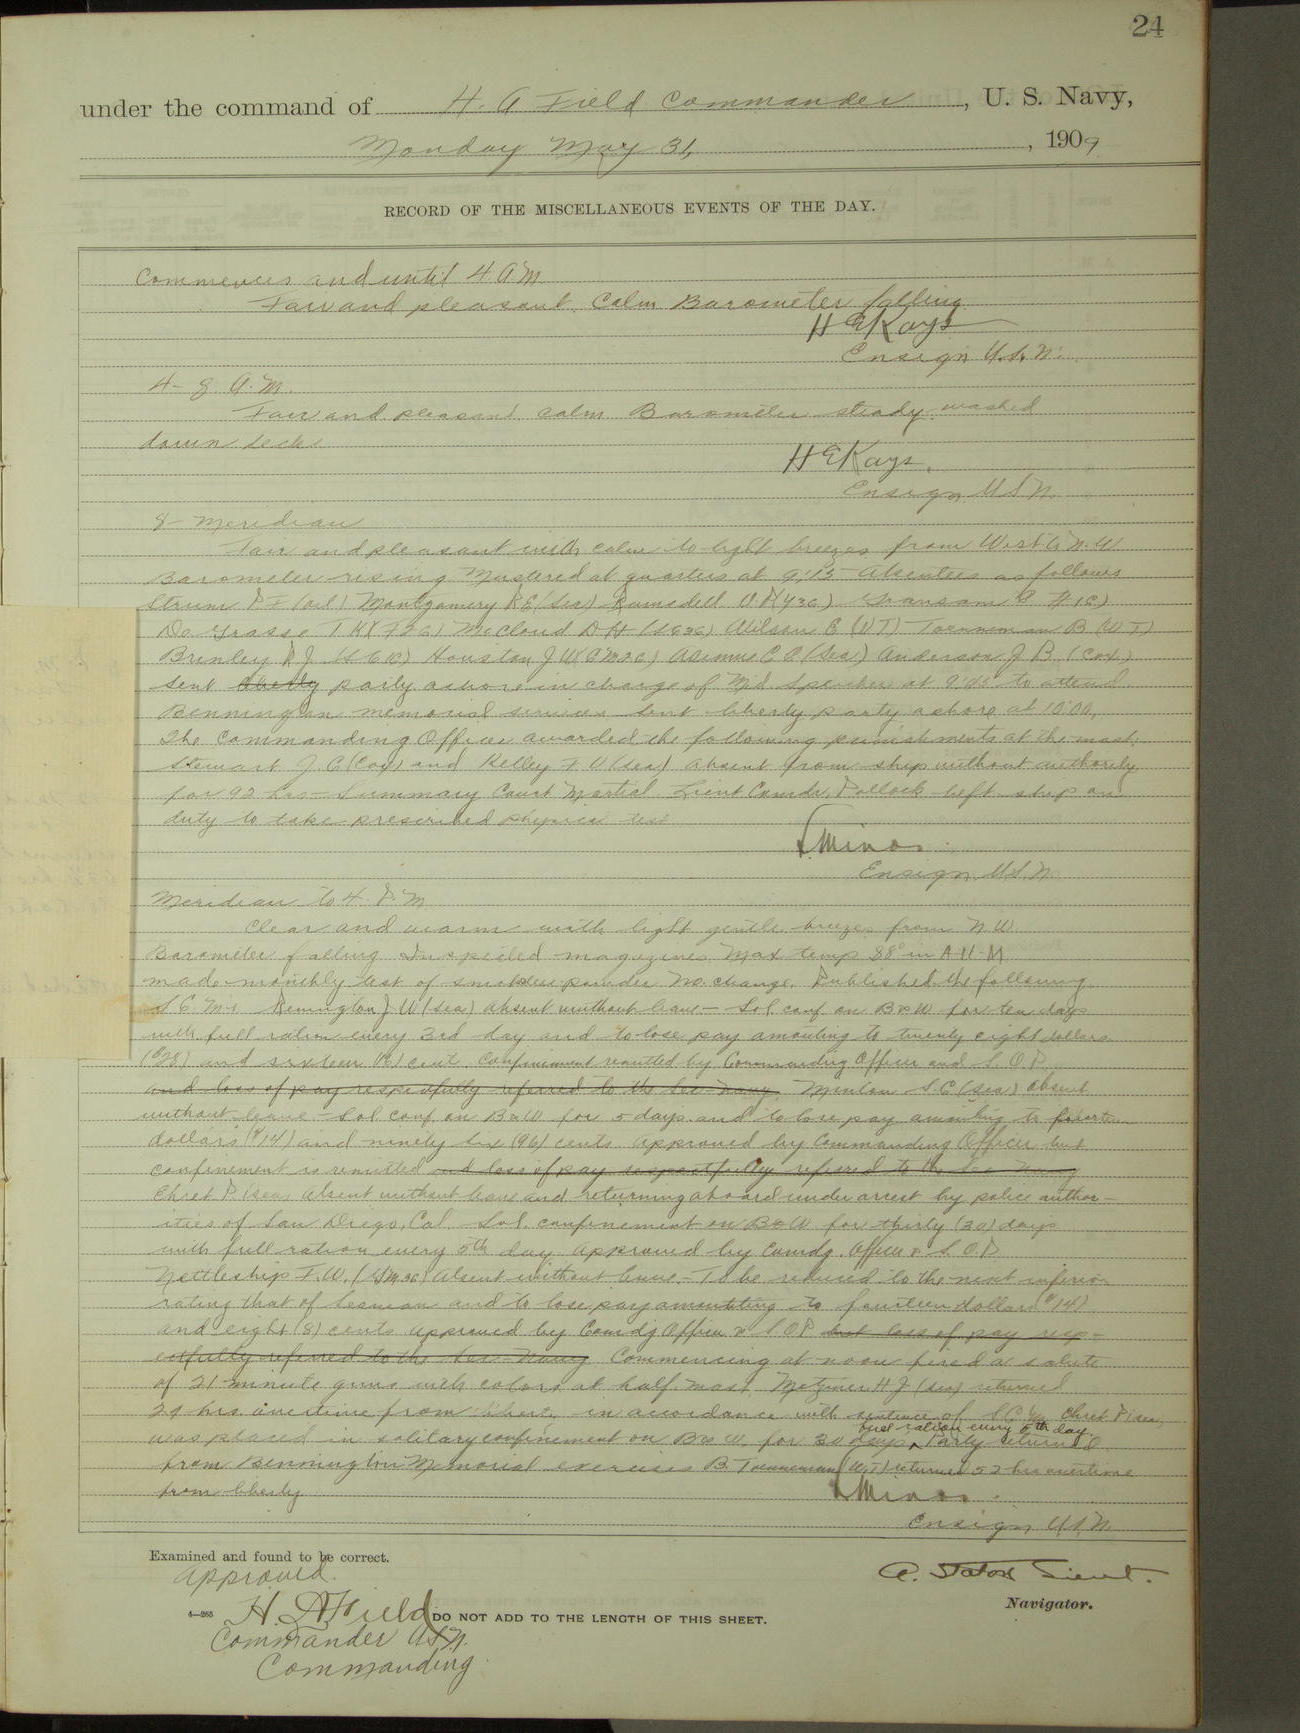 24
under the command of H. A Field Commander, U. S. Navy,
Monday May 31, 1909
RECORD OF THE MISCELLANEOUS EVENTS OF THE DAY.
Commences and until 4 A M
Fair and pleasant. Calm Barometer falling
H E Kays
Ensign U.S.N.
4- 8. A.M.
Fair and pleasant calm Barometer steady washed
down decks
H E Kays.
Ensign U S N.
8- Meridian
Fair and pleasant with calm to light breezes from West to N.W
Barometer rising Mustered at quarters at 9:15 Absentees as follows
Montgomery R E (Sea) Ramsdell
De Grasse McCloud D H Wilson E (WT) Toenneman B (WT)
Brinley R J Houston J W Anderson J B (Cox)
sent liberty party ashore in charge of Mid Spencer at 9:45 to attend
Bennington memorial services Sent liberty party ashore at 10:00.
The Commanding Officer awarded the following punishments at the mast.
Stewart J. C (Cox) and Kelley F. V (Sea) Absent from ship without authority
for 92 hrs - Summary Court Martial Lieut Comdr. Pollock left ship on
duty to take prescribed physical test
Minor.
Ensign U.S.N.
Meridian to 4. P. M
Clear and warm with light gentle breezes from N.W.
Barometer falling Inspected magazines Max temp 88° in A-11-M
made monthly test of smokeless powder No. change. Published the following
Remington J W (Sea) Absent without leave - Sol conf on B&W for ten days
with full ration every 3rd day and to lose pay amounting to twenty eight dollars
($28) and sixteen (16) cents Confinement remitted by Commanding Officer and S. O P.
and loss of pay respectfully referred to the Sec Navy. Minton S. C (Sea) absent
without leave - Sol conf. on B&W for 5 days and to lose pay amounting to fourteen
dollars ($14) and ninety six (96) cents Approved by Commanding Officer but
confinement is remitted and loss of pay respectfully referred to the Sec Navy
Chret P. (Sea) Absent without leave and returning aboard under arrest by police author-
ities of San Diego, Cal. Sol. confinement on B&W for thirty (30) days
with full ration every 5th day Approved by Comdg. Officer & S. O. P
Nettleship F. W. Absent without leave - To be reduced to the next inferior
rating that of Seaman and to lose pay amounting to fourteen dollars ($14)
and eight (8) cents Approved by Comdg Officer & S O P but loss of pay resp-
ectfully referred to the Sec Navy Commencing at noon fired a salute
of 21 minute guns with colors at half mast Metzner H J (Sea) returned
29 hrs. overtime from liberty in accordance with sentence of Chret P (Sea)
was placed in solitary confinement on B & W. for 30 days full ration every 5th day. Party returned
from Bennington Memorial exercises B. Toenneman (W.T) returned 52 hrs overtime
from liberty
Minor.
Ensign U.S.N.
Examined and found to be correct.
Approved.
H. A Field
Commander U.S.N.
Commanding
A. Staton Lieut.
Navigator.
4—265
DO NOT ADD TO THE LENGTH OF THIS SHEET.